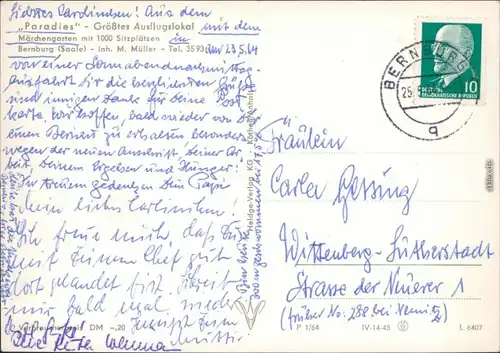 Liebstes Carlinchen! Aus dem
„Paradies" - Größtes Ausflugslokal mit dem
Märchengarten mit 1000 Sitzplätzen in
Bernburg (Saale) - Inh. M. Müller - Tel. 3593 am 23.5.64
von einer Sonnabendnachmittag-
ausfahrt Dir die herzlichsten Grüße
und innigen Dank für Deine Post-
karte. Wir hoffen, bald wieder von D
einen Bericht zu erhalten besonders
wegen der neuen Anschrift Deiner Ar-
beit, Deinem Ergehen und Hunger!
In treuem Gedenken Dein Papi
Mein liebes Carlinchen!
Ich freue mich, daß Du
mit Deinem Chef gut
dort gelandet bist. Schreib
mir bald mal wieder
Deine Mutti
Verbraucherpreis DM -,20
Heldge-Verlag KG - Köthen/Anhalt
BERNBURG
25.
q
DEUTSCHE
DEMOKRATISCHE REPUBLIK
10
Fräulein
Carla Hessing
Wittenberg-Lutherstadt
Strasse der Neuerer 1
(früher No: 288 bei Nemitz)
P 1/64 IV-14-45 L 6407